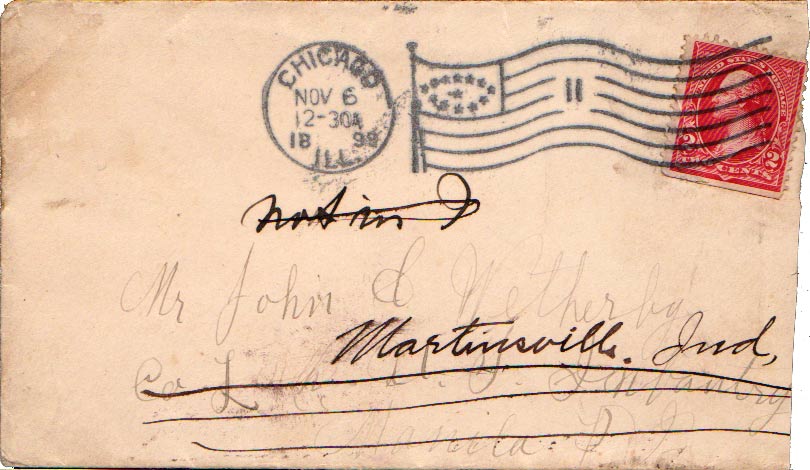 CHICAGO
NOV 6
12-30A
18 99
ILL.
II
UNITED STATES POSTAGE
2 2
CENTS
not in
Mr John C Wetherby
Martinsville. Ind,
Co L U. S. Infantry
Manila P. I.